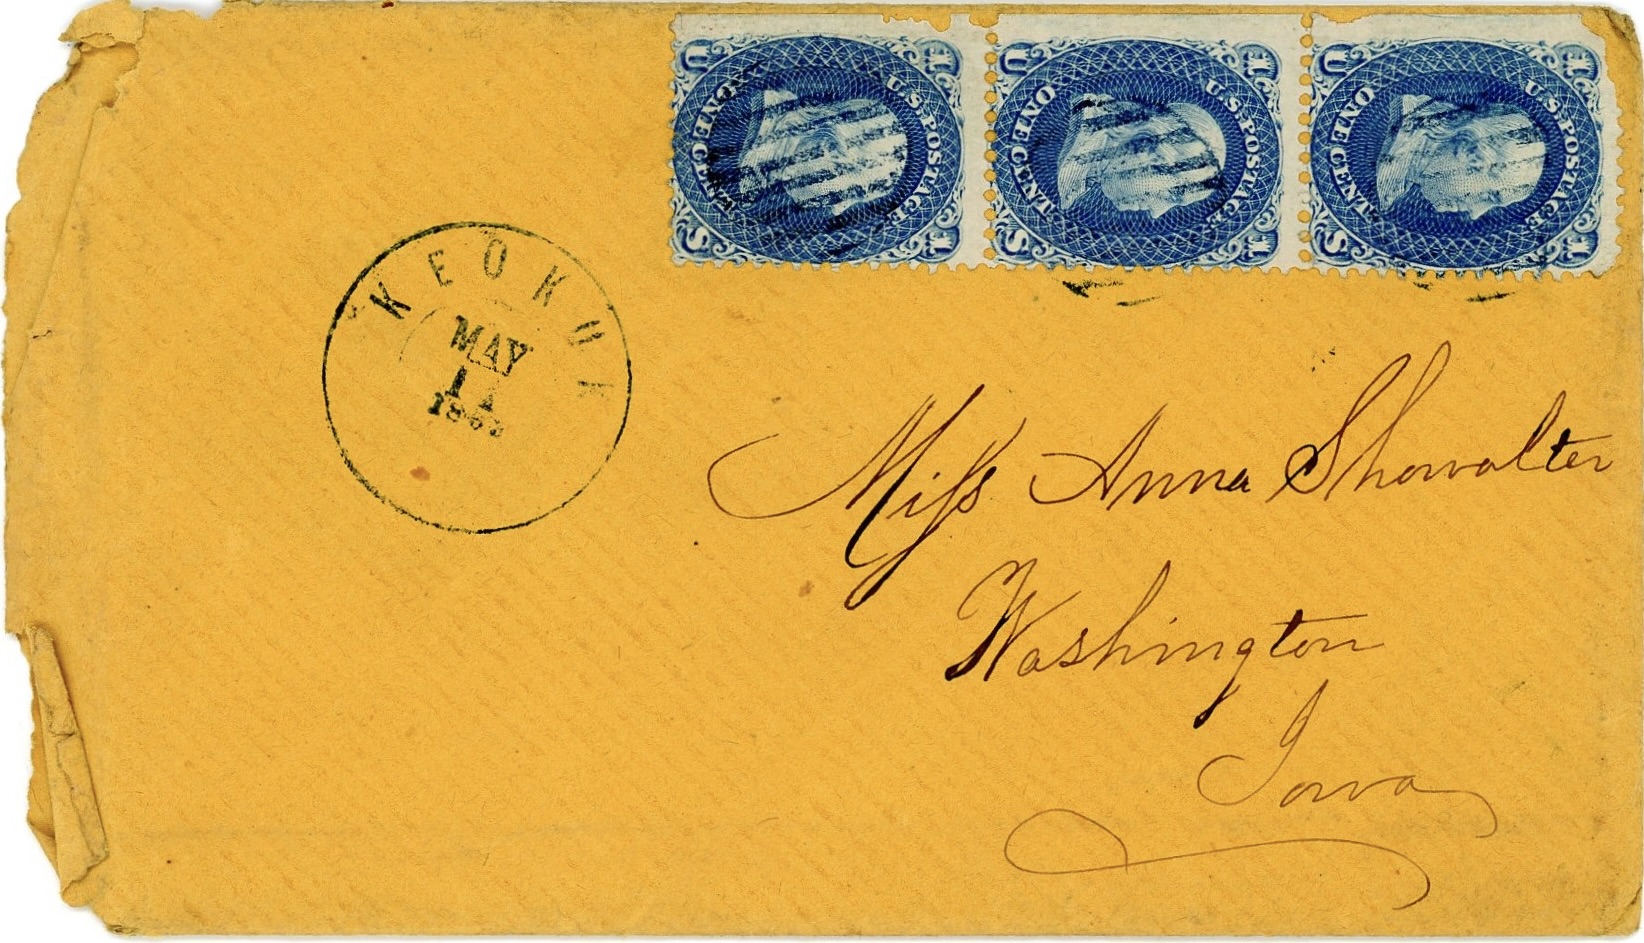 U 1
ONE CENT.
U.S. POSTAGE.
S 1
U 1
ONE CENT.
U.S. POSTAGE.
S 1
U 1
ONE CENT.
U.S. POSTAGE.
S 1
KEOKUK
MAY
Miſs Anna Showalter
Washington
Iowa